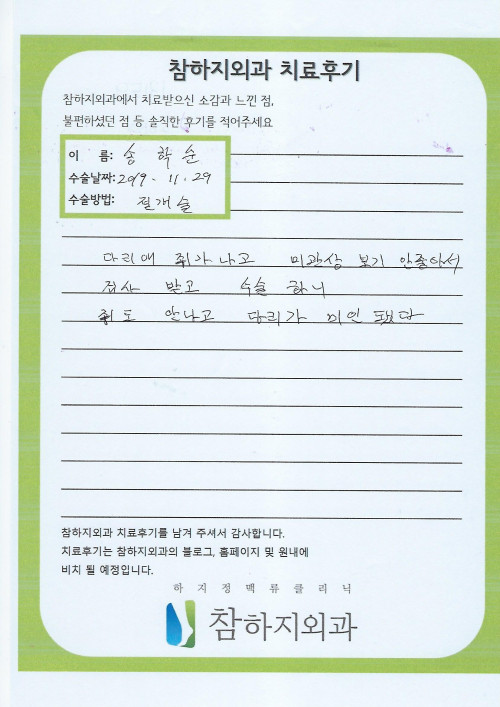 참하지외과 치료후기
참하지외과에서 치료받으신 소감과 느낀 점,
불편하셨던 점 등 솔직한 후기를 적어주세요
이 름: 송 학 순
수술날짜: 2019 . 11 . 29
수술방법: 절개술
다리에 쥐가 나고 미관상 보기 안좋아서
검사 받고 수술 하니
쥐도 안나고 다리가 미인 됐다
참하지외과 치료후기를 남겨 주셔서 감사합니다.
치료후기는 참하지외과의 블로그, 홈페이지 및 원내에
비치 될 예정입니다.
하지정맥류클리닉
참하지외과